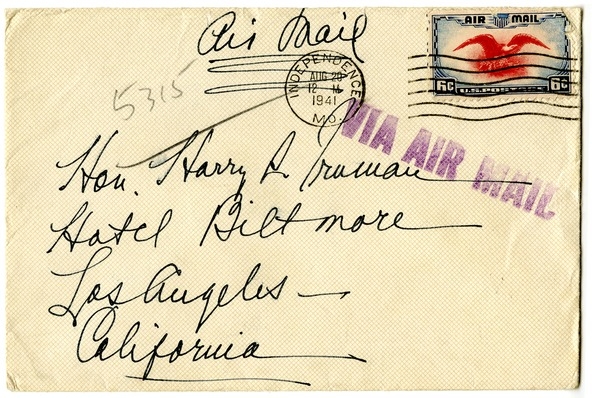 Air Mail
AIR MAIL
6c U.S. POSTAGE 6c
INDEPENDENCE
AUG 20
12 M
1941
MO.
5315
VIA AIR MAIL
Hon. Harry S. Truman
Hotel Biltmore
Los Angeles
California